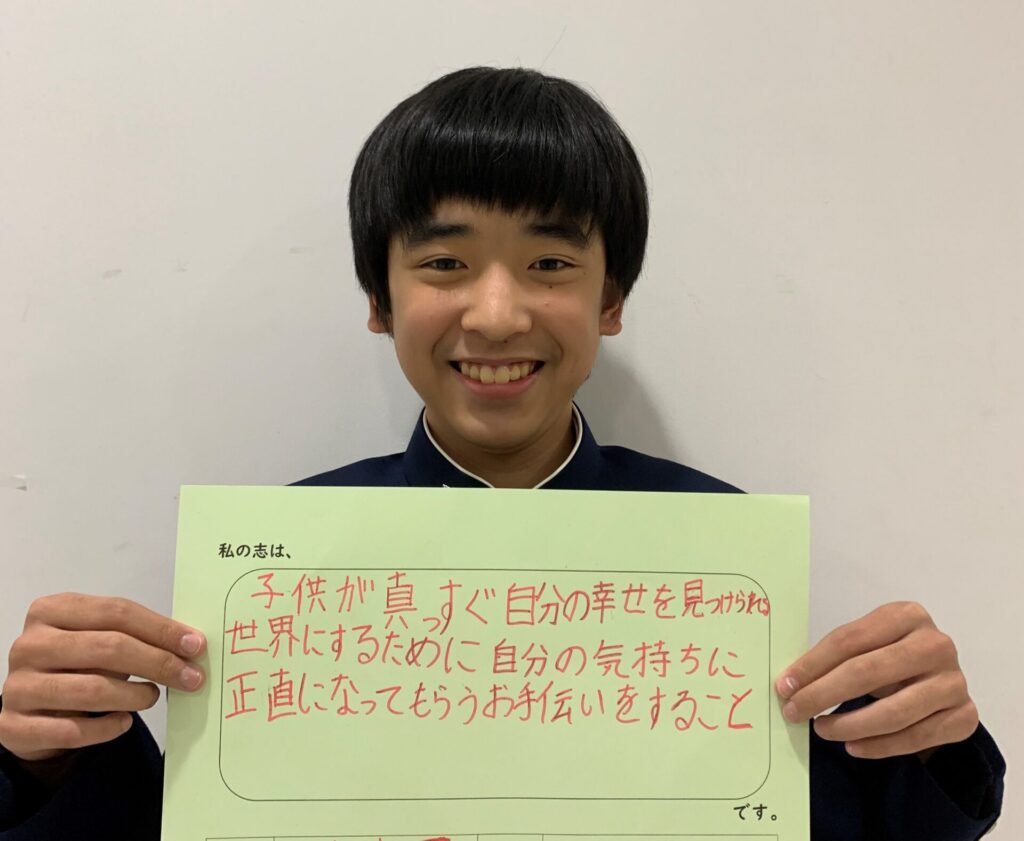 私の志は、
子供が真っすぐ自分の幸せを見つけられる
世界にするために自分の気持ちに
正直になってもらうお手伝いをすること
です。